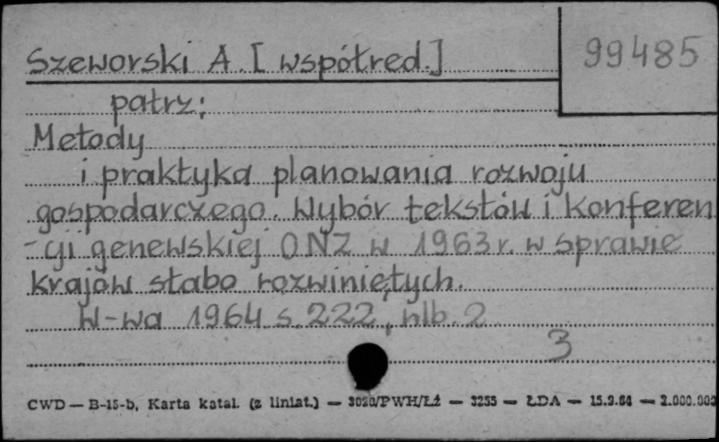 Szeworski A. [współred.]
99485
patrz:
Metody
i praktyka planowania rozwoju
gospodarczego. Wybór tekstów i Konferen
-cji genewskiej ONZ w 1963 r. w sprawie
krajów słabo rozwiniętych.
W-wa 1964 s. 222, nlb. 2
3
CWD — B-15-b, Karta katal. (z liniat.) — 3020/PWH/Łź — 3255 — ŁDA — 15.9.64 — 2.000.000